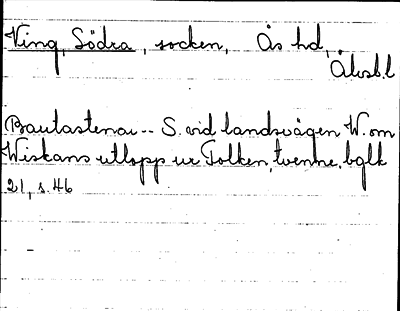 Ving, Södra, socken, Ås hd,
Älvsb.l
Bautastenar -- S. vid landsvägen W. om
Wiskans utlopp ur Tolken, tvenne, bglk
21, s. 46